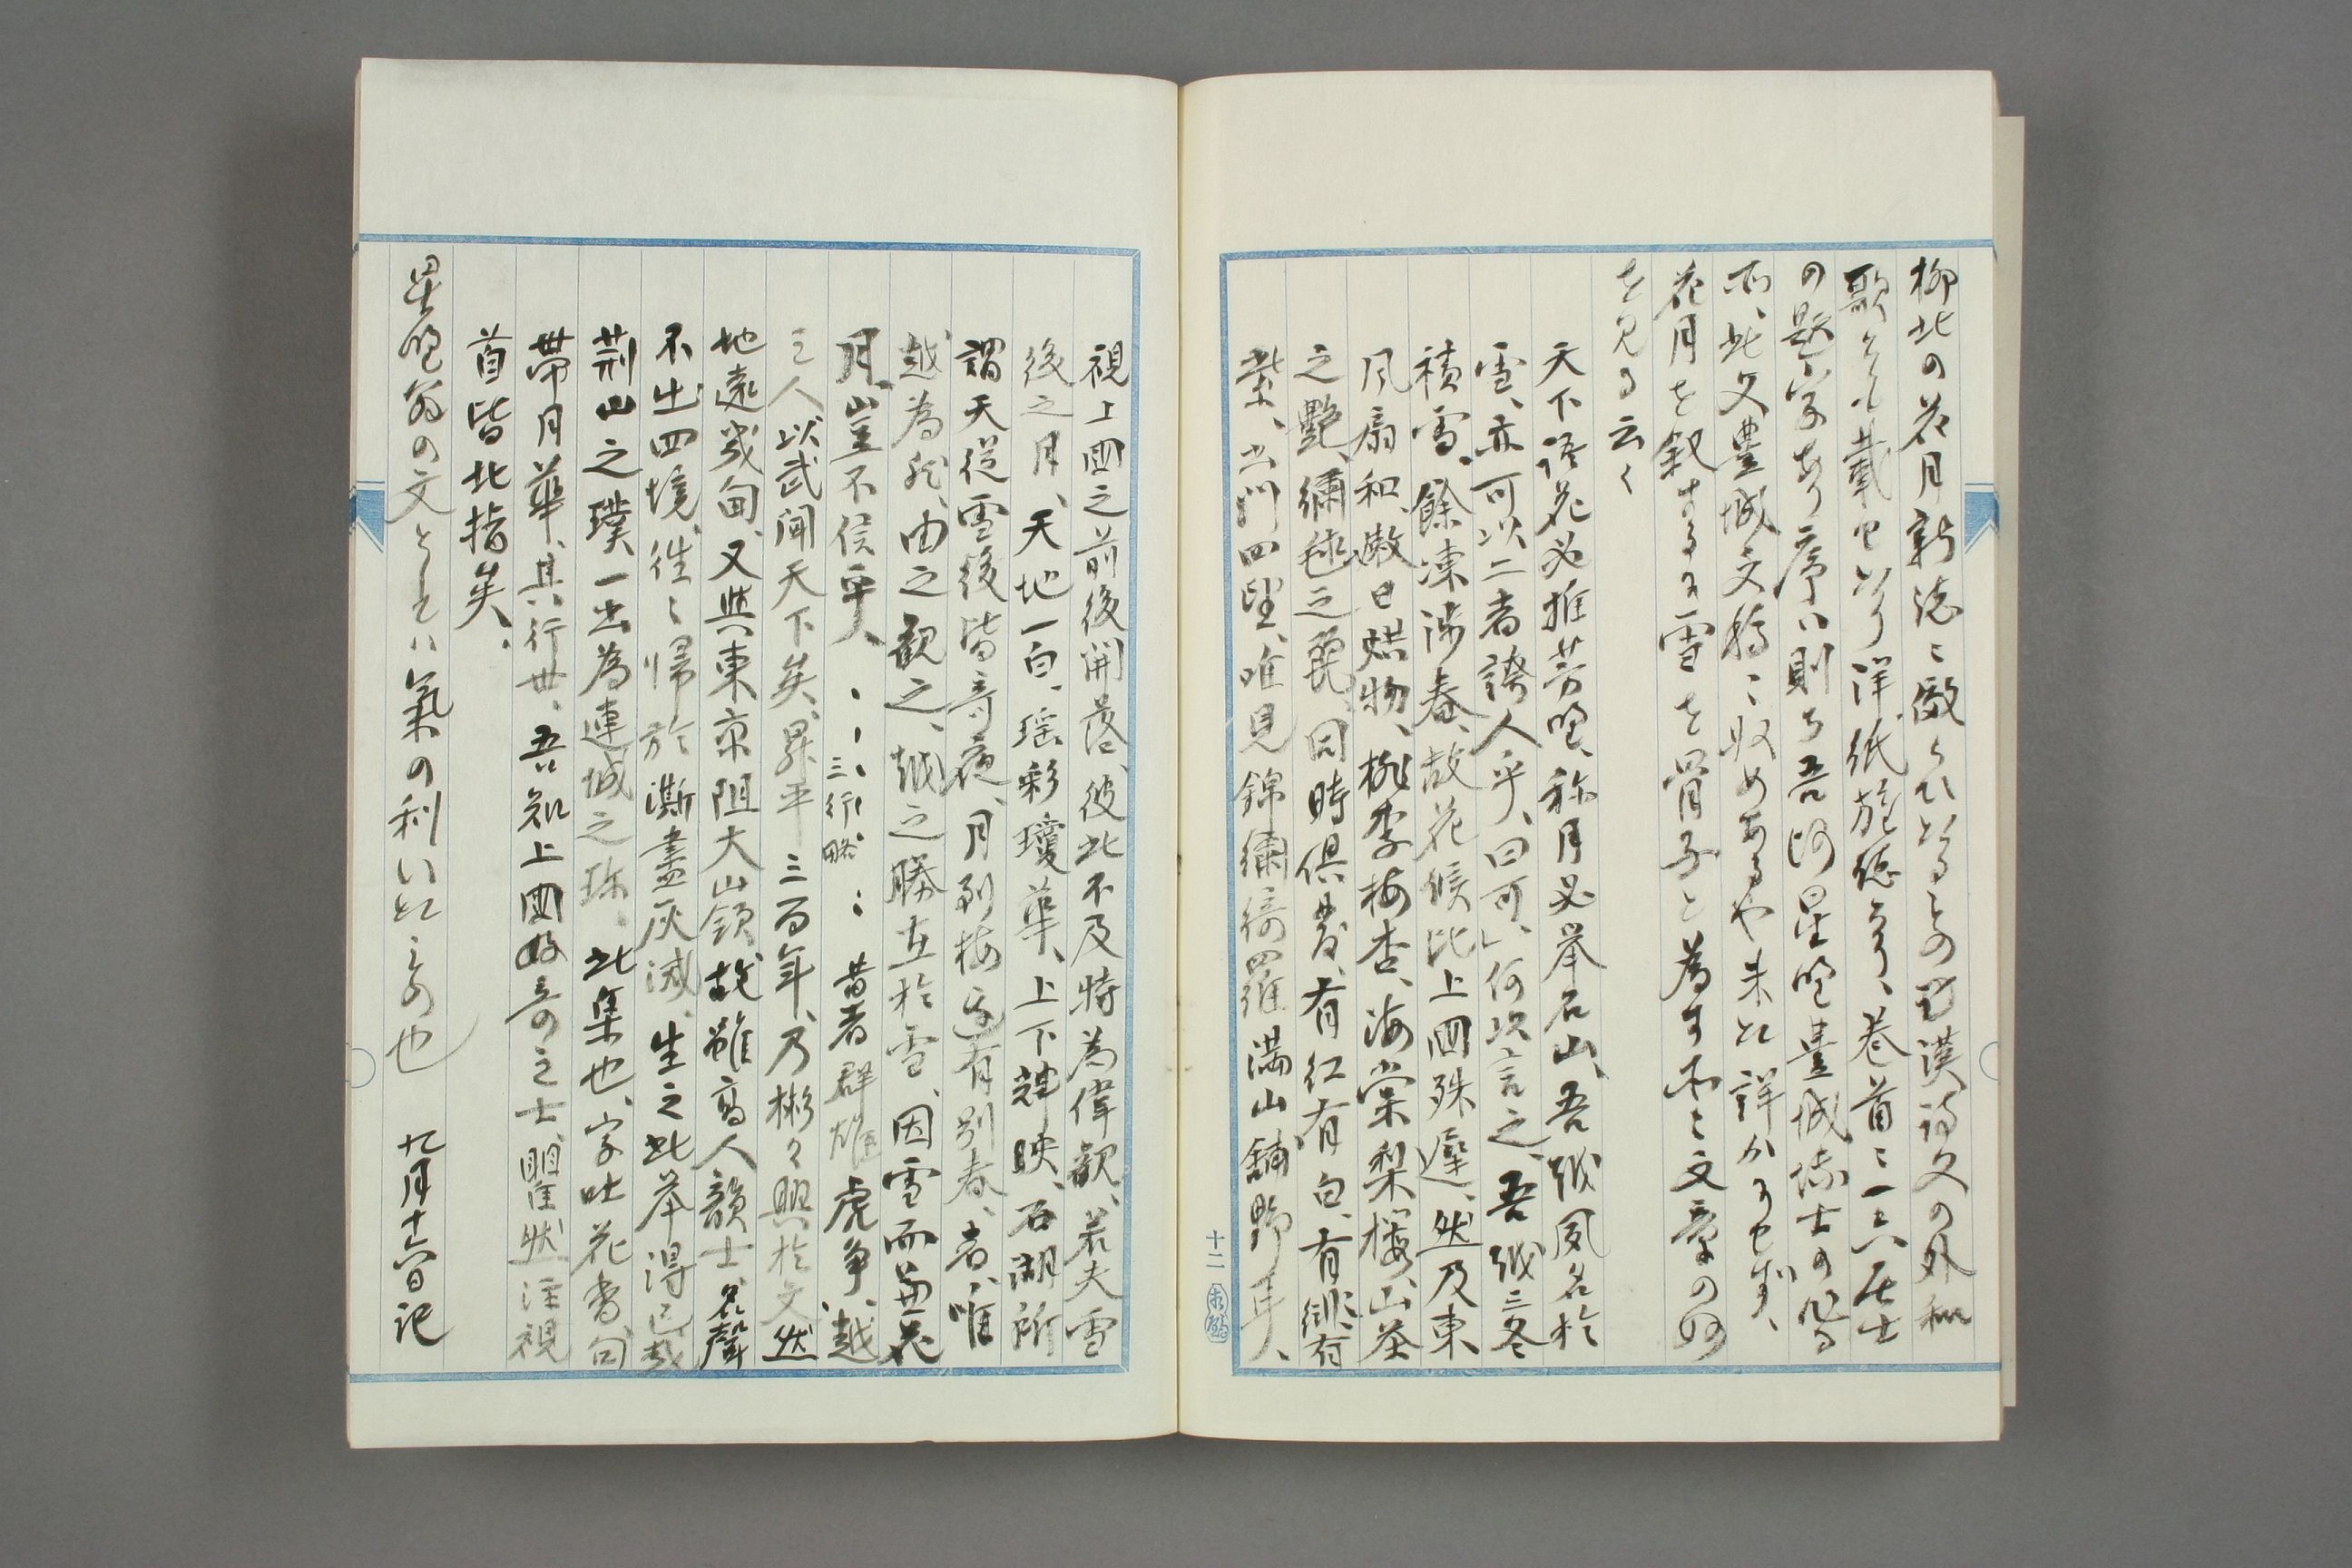 柳北の花月新誌に倣ひたるもの歟漢詩文の外和
歌をも載せたり洋紙旋徳なり、巻首に一六居士
の題字あり序は則ち吾師星野豊城塾士の作る
所、此文豊城文稿に収めあるや未た詳かならず、
花月を叙するに雪を骨子と為す、文章の妙
を見る云々
天下語花必推芳野、称月必挙石山、吾越夙名於
雪、亦可以二者誇人乎、曰可、何以言之、吾越三冬
積雪、餘凍渉春、故花候比上国殊遅、然及東
風扇和、暾日烘物、桃李梅杏、海棠梨櫻、山茶
之艶、繍毬之麗、同時倶發、有紅有白、有緋有
紫、出門四望、唯見錦繡綺羅満山鋪野耳、
視上国之前後開落、彼此不及時為偉観、若夫雪
後之月、天地一白、瑶彩瓊華、上下輝映、石湖所
謂天從雪後皆奇夜、月到梅邊有別春、者、唯
越為然、由之観之、越之勝在於雪、因雪而兼花
月、豈不侈乎、、、三行略、、昔者群雄虎争、越
之人以武聞天下矣、昇平三百年、乃彬々興於文然
地遠畿甸、又與東京阻大山嶺、故雖高人韻士名聲
不出四境、往々帰於澌盡灰滅、生之此挙得已哉
荊山之璞一出為連城之珍、此集也、字吐花香、句
帯月華、其行世、吾知上国好奇之士瞿然注視
首皆北指矣、
星野翁の文としては気の利いた方也 九月十六日記
十二